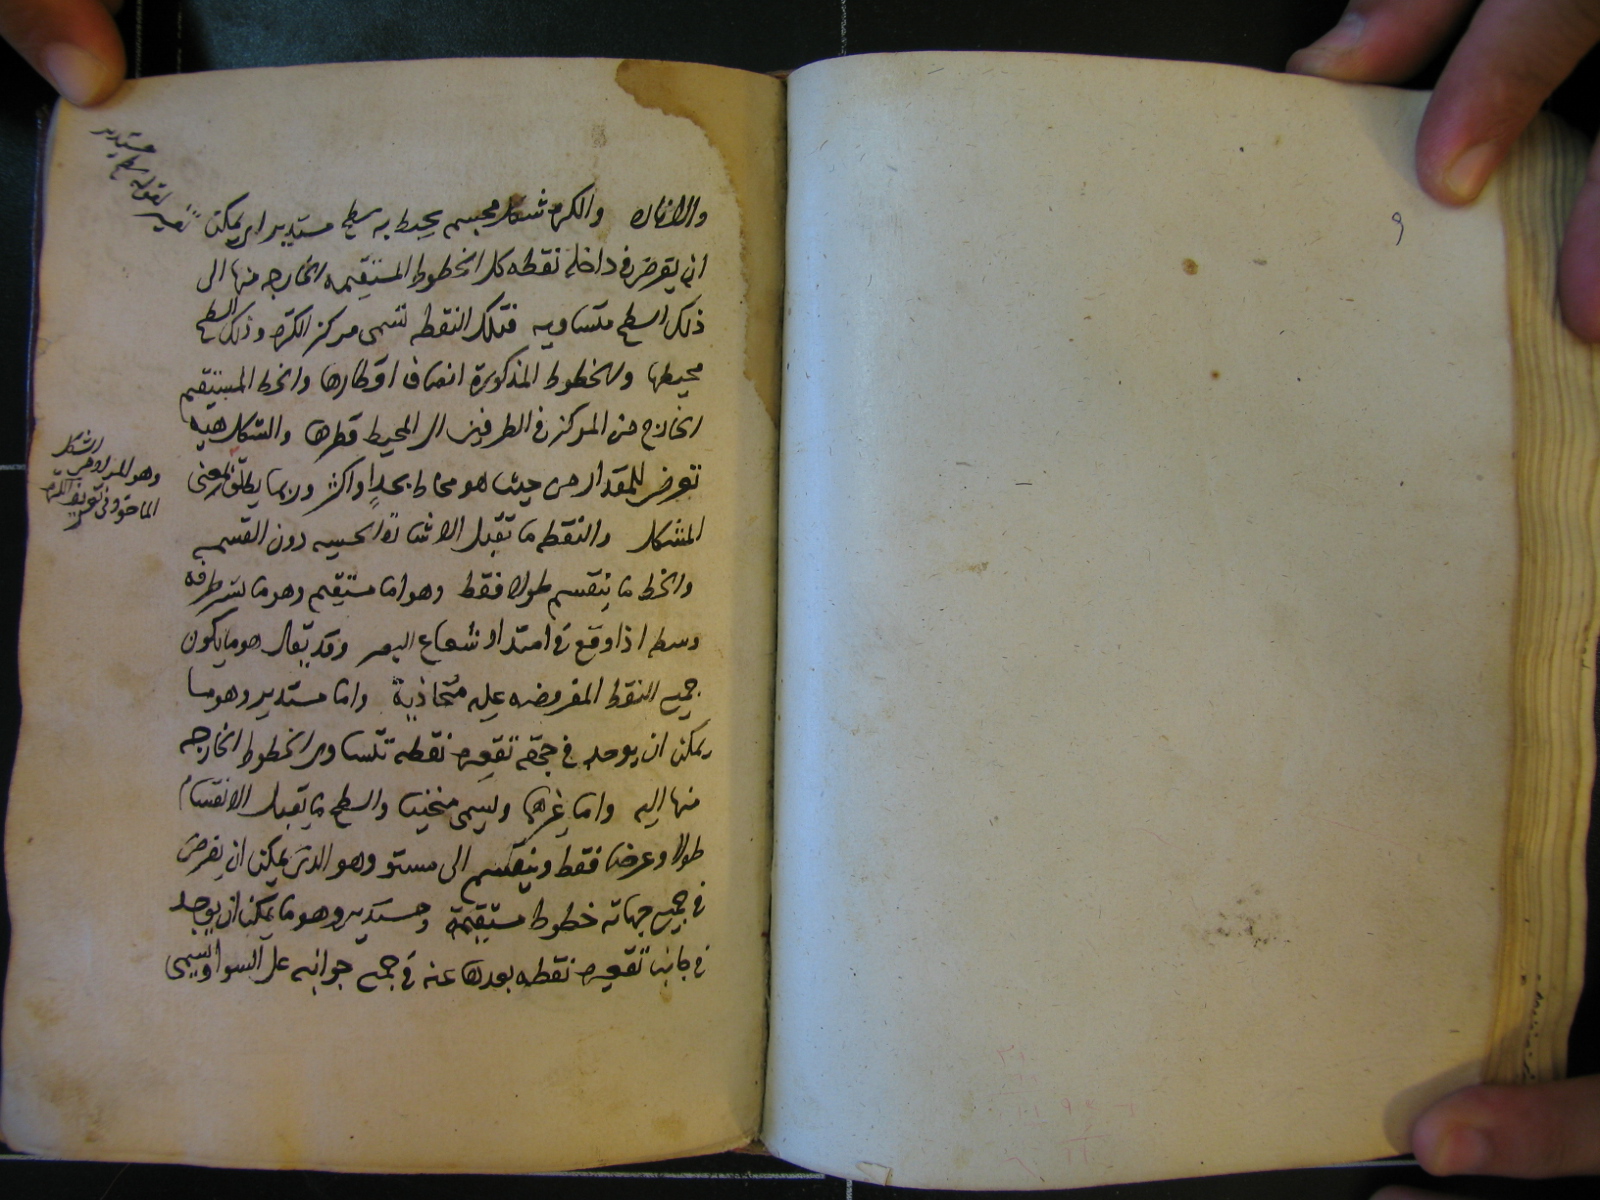 والاناره والكره شكل مجسم يحيط به سطح مستدير اى يمكن
ان يفرض فى داخله نقطه كل الخطوط المستقيمه الخارجه منها الى
ذلك السطح متساويه فتلك النقطه تسمى مركز الكره وذلك السطح
محيطها والخطوط المذكورة انصاف اقطارها والخط المستقيم
الخارج من المركز فى الطرفين الى المحيط قطرها والشكل هيه
تعرض للمقدار من حيث هو محاط بحد او اكثر وربما يطلق لمعنى
المشكل والنقطه ما تقبل الاشارة الحسيه دون القسمه
والخط ما ينقسم طولا فقط وهو اما مستقيم وهو ما يستر طرفه
وسطه اذا وقع فى امتداد شعاع البصر وقد يقال هو ما يكون
جميع النقط المفروضه عليه متحاذية واما مستدير وهو ما
يمكن ان يوجد فى جهة تقعيره نقطه تتساوى الخطوط الخارجه
منها اليه واما غيرها ويسمى منحنيا والسطح ما يقبل الانقسام
طولا وعرضا فقط وينقسم الى مستو وهو الذى يمكن ان يفرض
فى جميع جهاته خطوط مستقيمة ومستدير وهو ما يمكن ان يوجد
فى جانب تقعيره نقطه بعدها عنه فى جميع جوانبه على السواء ويسمى
تفسير لقوله سطح مستدير
وهو المراد من الشكل
الماخوذ فى تعريف الكره
٩